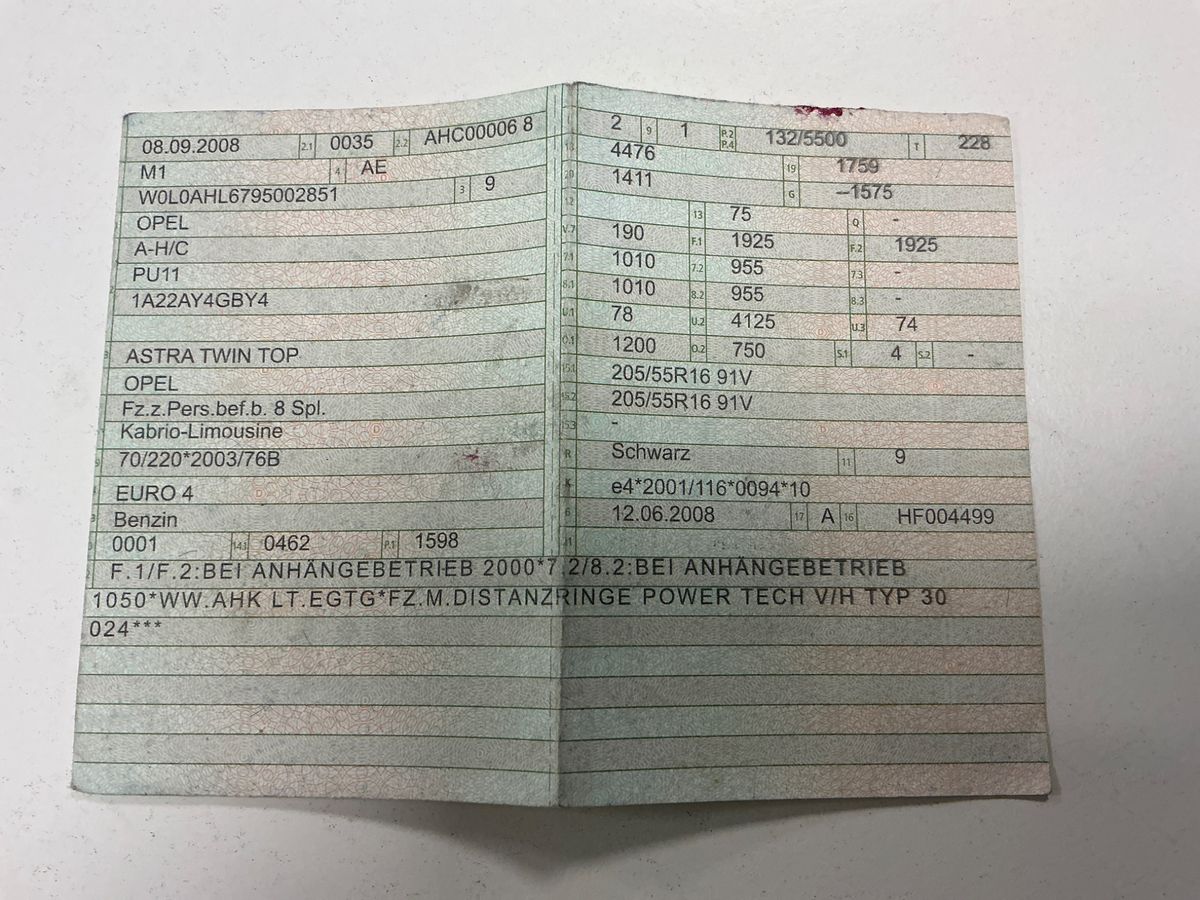 08.09.2008 2.1 0035 2.2 AHC00006 8
M1 4 AE
W0L0AHL6795002851 3 9
OPEL
A-H/C
PU11
1A22AY4GBY4
ASTRA TWIN TOP
OPEL
Fz.z.Pers.bef.b. 8 Spl.
Kabrio-Limousine
70/220*2003/76B
EURO 4
Benzin
0001 14.1 0462 P.1 1598
2 9 1 P.2 P.4 132/5500 T 228
18 4476 19 1759
20 1411 G –1575
12 13 75 Q -
V.7 190 F.1 1925 F.2 1925
7.1 1010 7.2 955 7.3 -
8.1 1010 8.2 955 8.3 -
U.1 78 U.2 4125 U.3 74
O.1 1200 O.2 750 S.1 4 S.2 -
15.1 205/55R16 91V
15.2 205/55R16 91V
15.3 -
R Schwarz 11 9
K e4*2001/116*0094*10
6 12.06.2008 17 A 16 HF004499
21
F.1/F.2:BEI ANHÄNGEBETRIEB 2000*7.2/8.2:BEI ANHÄNGEBETRIEB
1050*WW.AHK LT.EGTG*FZ.M.DISTANZRINGE POWER TECH V/H TYP 30
024***